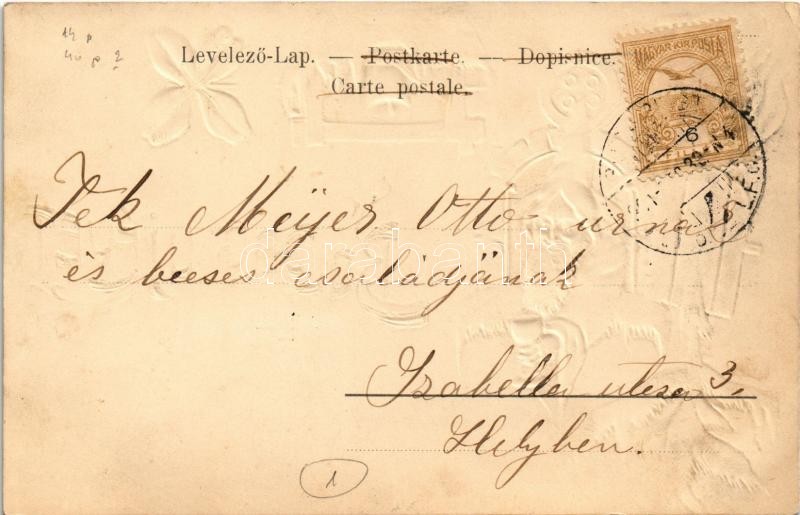 14 p
40 p 2
Levelező-Lap. — Postkarte. — Dopisnice.
Carte postale.
MAGYAR KIR. POSTA
6
Tek Meÿer Otto urnak
és becses családjának
Izabella utcza 3.
Helyben.
1
darabanth